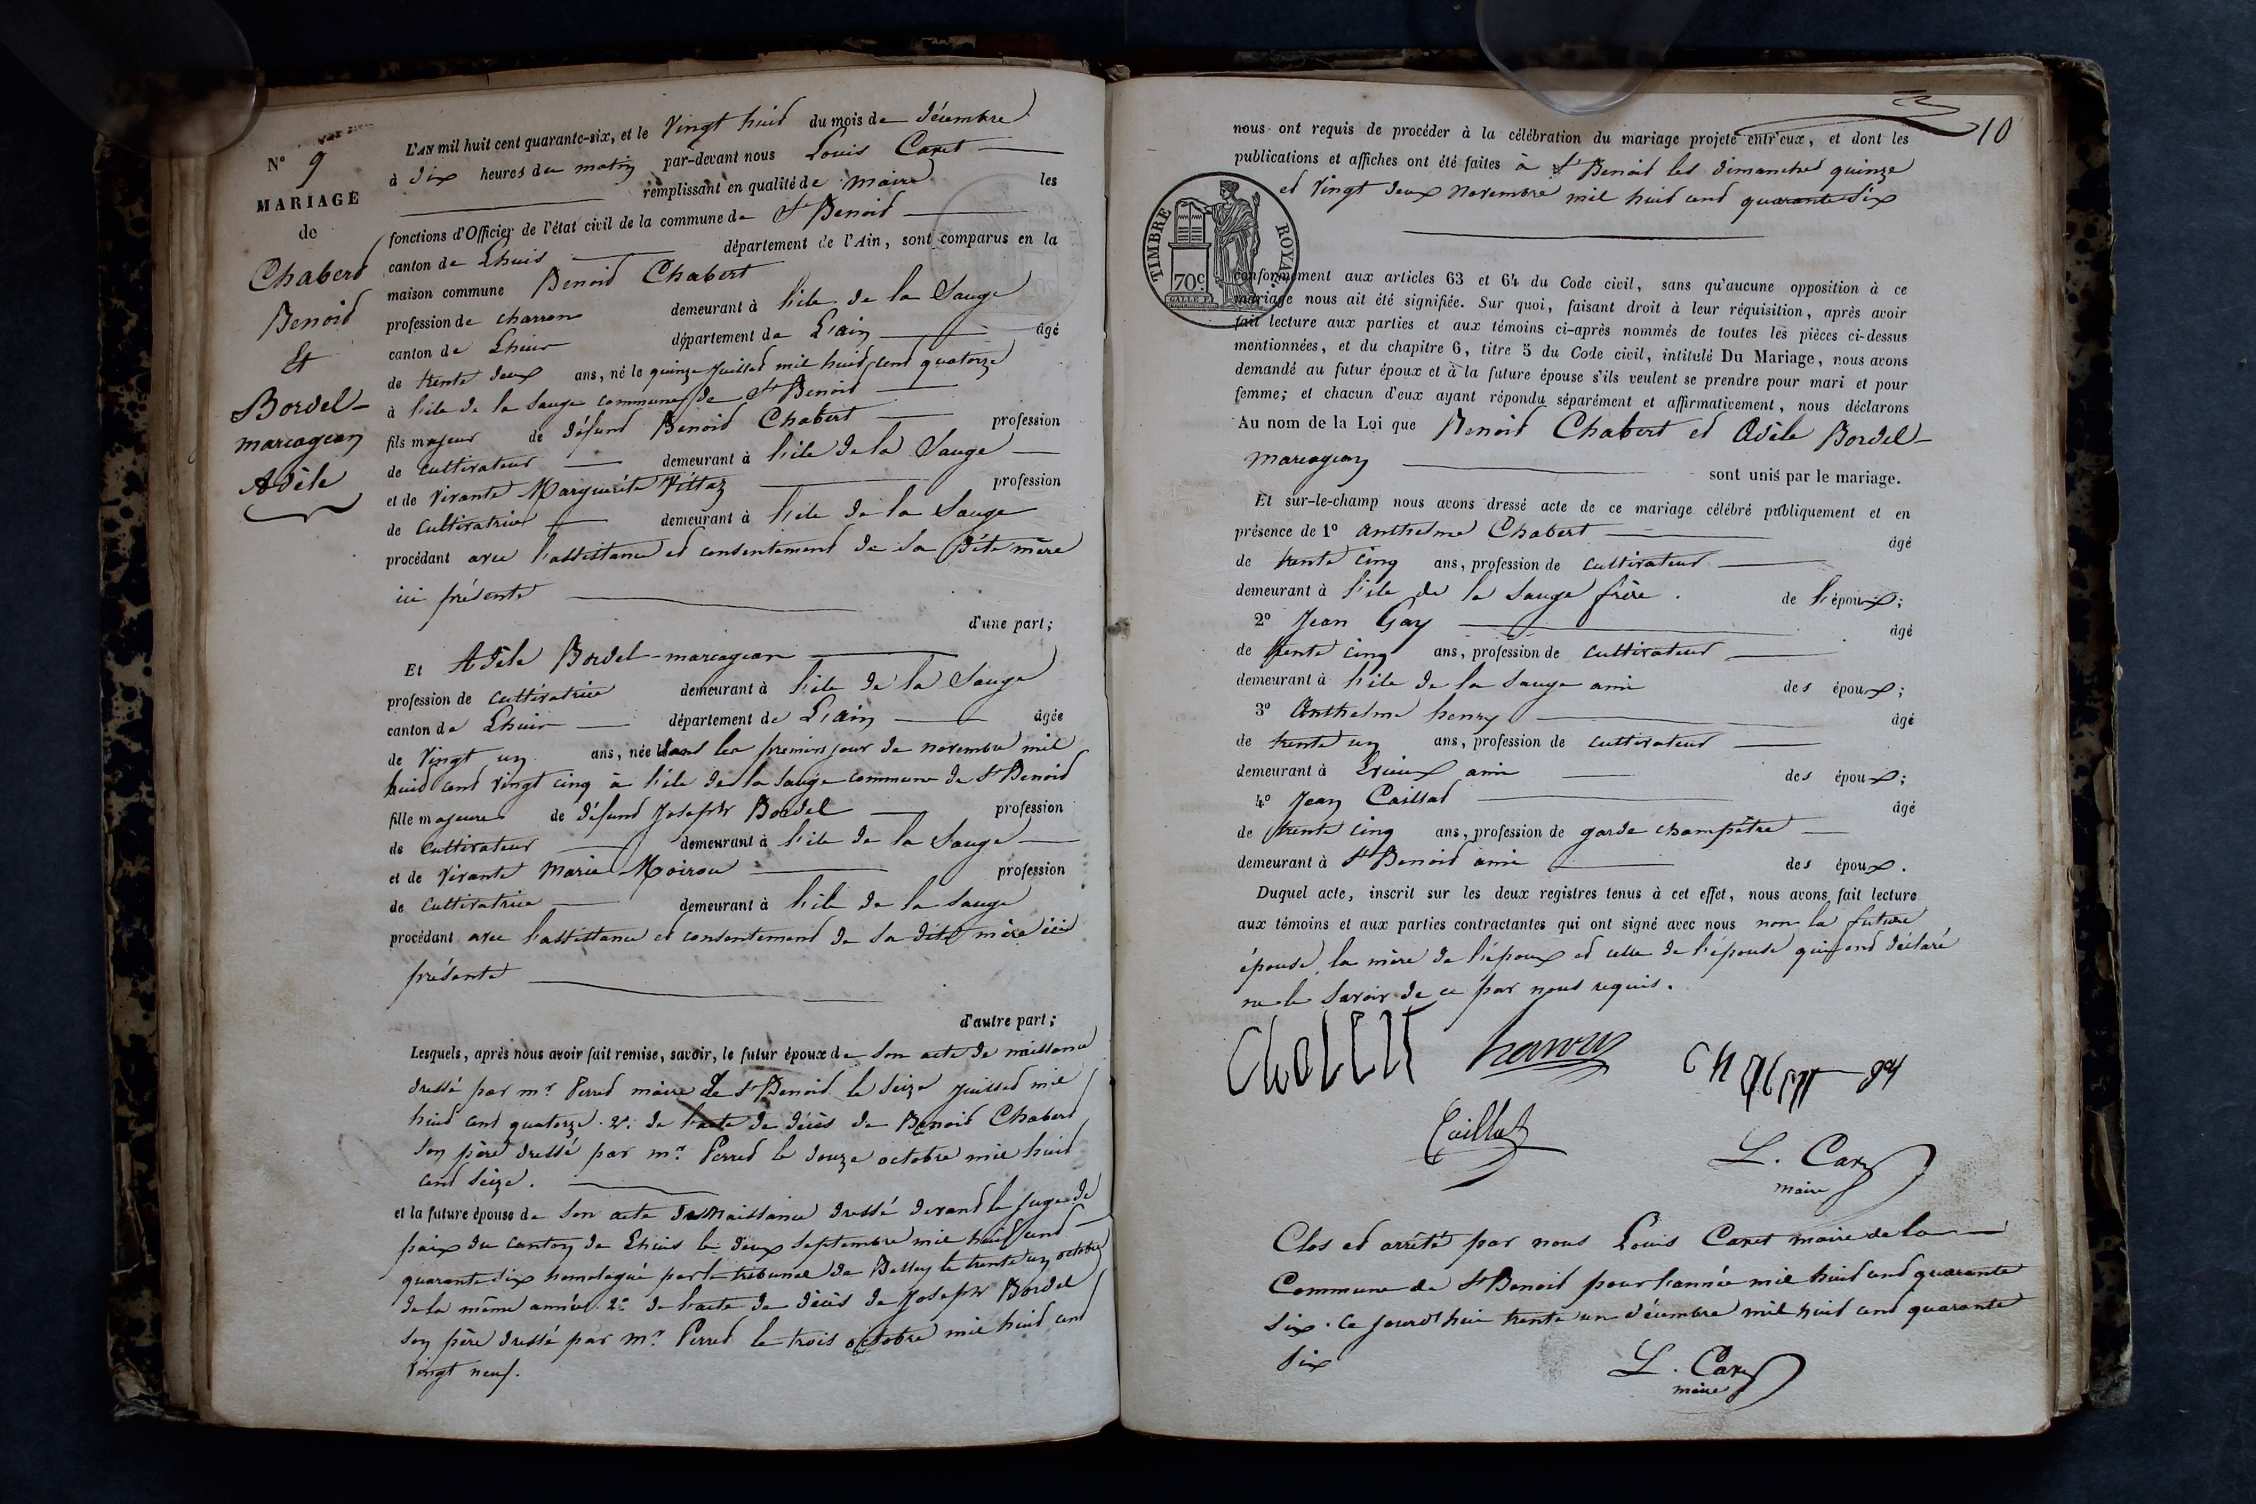 N° 9
MARIAGE
de
Chabert
Benoid
Et
Bordel-
marcagean
Adèle
L'AN mil huit cent quarante-six, et le Vingt huit du mois de décembre
à dix heures du matin par-devant nous Louis Caret
remplissant en qualité de maire les
fonctions d'Officier de l'état civil de la commune de St Benoid
canton de Lhuis département de l'Ain, sont comparus en la
maison commune Benoid Chabert
profession de charron demeurant à l'ile de la Sauge
canton de Lhuis département de L'ain âgé
de trente deux ans, né le quinze juillet mil huit cent quatorze
à l'ile de la Sauge commune de St Benoid
fils majeur de défunt Benoid Chabert profession
de cultivateur demeurant à l'ile de la Sauge
et de vivante Marguerite Vittoz profession
de cultivatrice demeurant à l'ile de la Sauge
procédant avec l'assistance et consentement de sa dite mère
ici présente
d'une part;
Et Adèle Bordel-marcagean
profession de cultivatrice demeurant à l'ile de la Sauge
canton de Lhuis département de L'ain âgée
de vingt un ans, née dans les premiers jour de novembre mil
huit cent vingt cinq à l'ile de la Sauge commune de St Benoid
fille majeure de défunt Joseph Bordel profession
de cultivateur demeurant à l'ile de la Sauge
et de vivante Marie Moiroud profession
de cultivatrice demeurant à l'ile de la Sauge
procédant avec l'assistance et consentement de sa dite mère ici
présente
d'autre part;
Lesquels, après nous avoir fait remise, savoir, le futur époux de son acte de naissance
dressé par mr. Perret maire de St Benoid le seize juillet mil
huit cent quatorze. 2°. de l'acte de décès de Benoid Chabert
son père dressé par mr. Perret le douze octobre mil huit
cent seize.
et la future épouse de son acte de naissance dressé devant le juge de
paix du canton de Lhuis le deux septembre mil huit cent
quarante six homologué par le tribunal de Belley le trente un octobre
de la même année. 2° de l'acte de décès de Joseph Bordel
son père dressé par mr. Perret le trois octobre mil huit cent
vingt neuf.
10
nous ont requis de procéder à la célébration du mariage projeté entr'eux, et dont les
publications et affiches ont été faites à St Benoid les dimanches quinze
et vingt deux novembre mil huit cent quarante six
TIMBRE ROYAL
70c.
conformément aux articles 63 et 64 du Code civil, sans qu'aucune opposition à ce
mariage nous ait été signifiée. Sur quoi, faisant droit à leur réquisition, après avoir
fait lecture aux parties et aux témoins ci-après nommés de toutes les pièces ci-dessus
mentionnées, et du chapitre 6, titre 5 du Code civil, intitulé Du Mariage, nous avons
demandé au futur époux et à la future épouse s'ils veulent se prendre pour mari et pour
femme; et chacun d'eux ayant répondu séparément et affirmativement, nous déclarons
Au nom de la Loi que Benoid Chabert et Adèle Bordel-
marcagean sont unis par le mariage.
Et sur-le-champ nous avons dressé acte de ce mariage célébré publiquement et en
présence de 1° Anthelme Chabert âgé
de trente cinq ans, profession de cultivateur
demeurant à l'ile de la Sauge frère. de l'époux;
2° Jean Gay âgé
de trente cinq ans, profession de cultivateur
demeurant à l'ile de la Sauge ami des époux;
3° Anthelme henry âgé
de trente un ans, profession de cultivateur
demeurant à ami des époux;
4° Jean Caillat âgé
de trente cinq ans, profession de garde champêtre
demeurant à St Benoid ami des époux.
Duquel acte, inscrit sur les deux registres tenus à cet effet, nous avons fait lecture
aux témoins et aux parties contractantes qui ont signé avec nous non la future
épouse, la mère de l'époux et celle de l'épouse qui ont déclaré
ne le savoir de ce par nous requis.
Chabert henry Chabert gay
Caillat L. Caret
maire
Clos et arrêté par nous Louis Caret maire de la
Commune de St Benoid pour l'année mil huit cent quarante
six. Ce jourd'hui trente un décembre mil huit cent quarante
six
L. Caret
maire